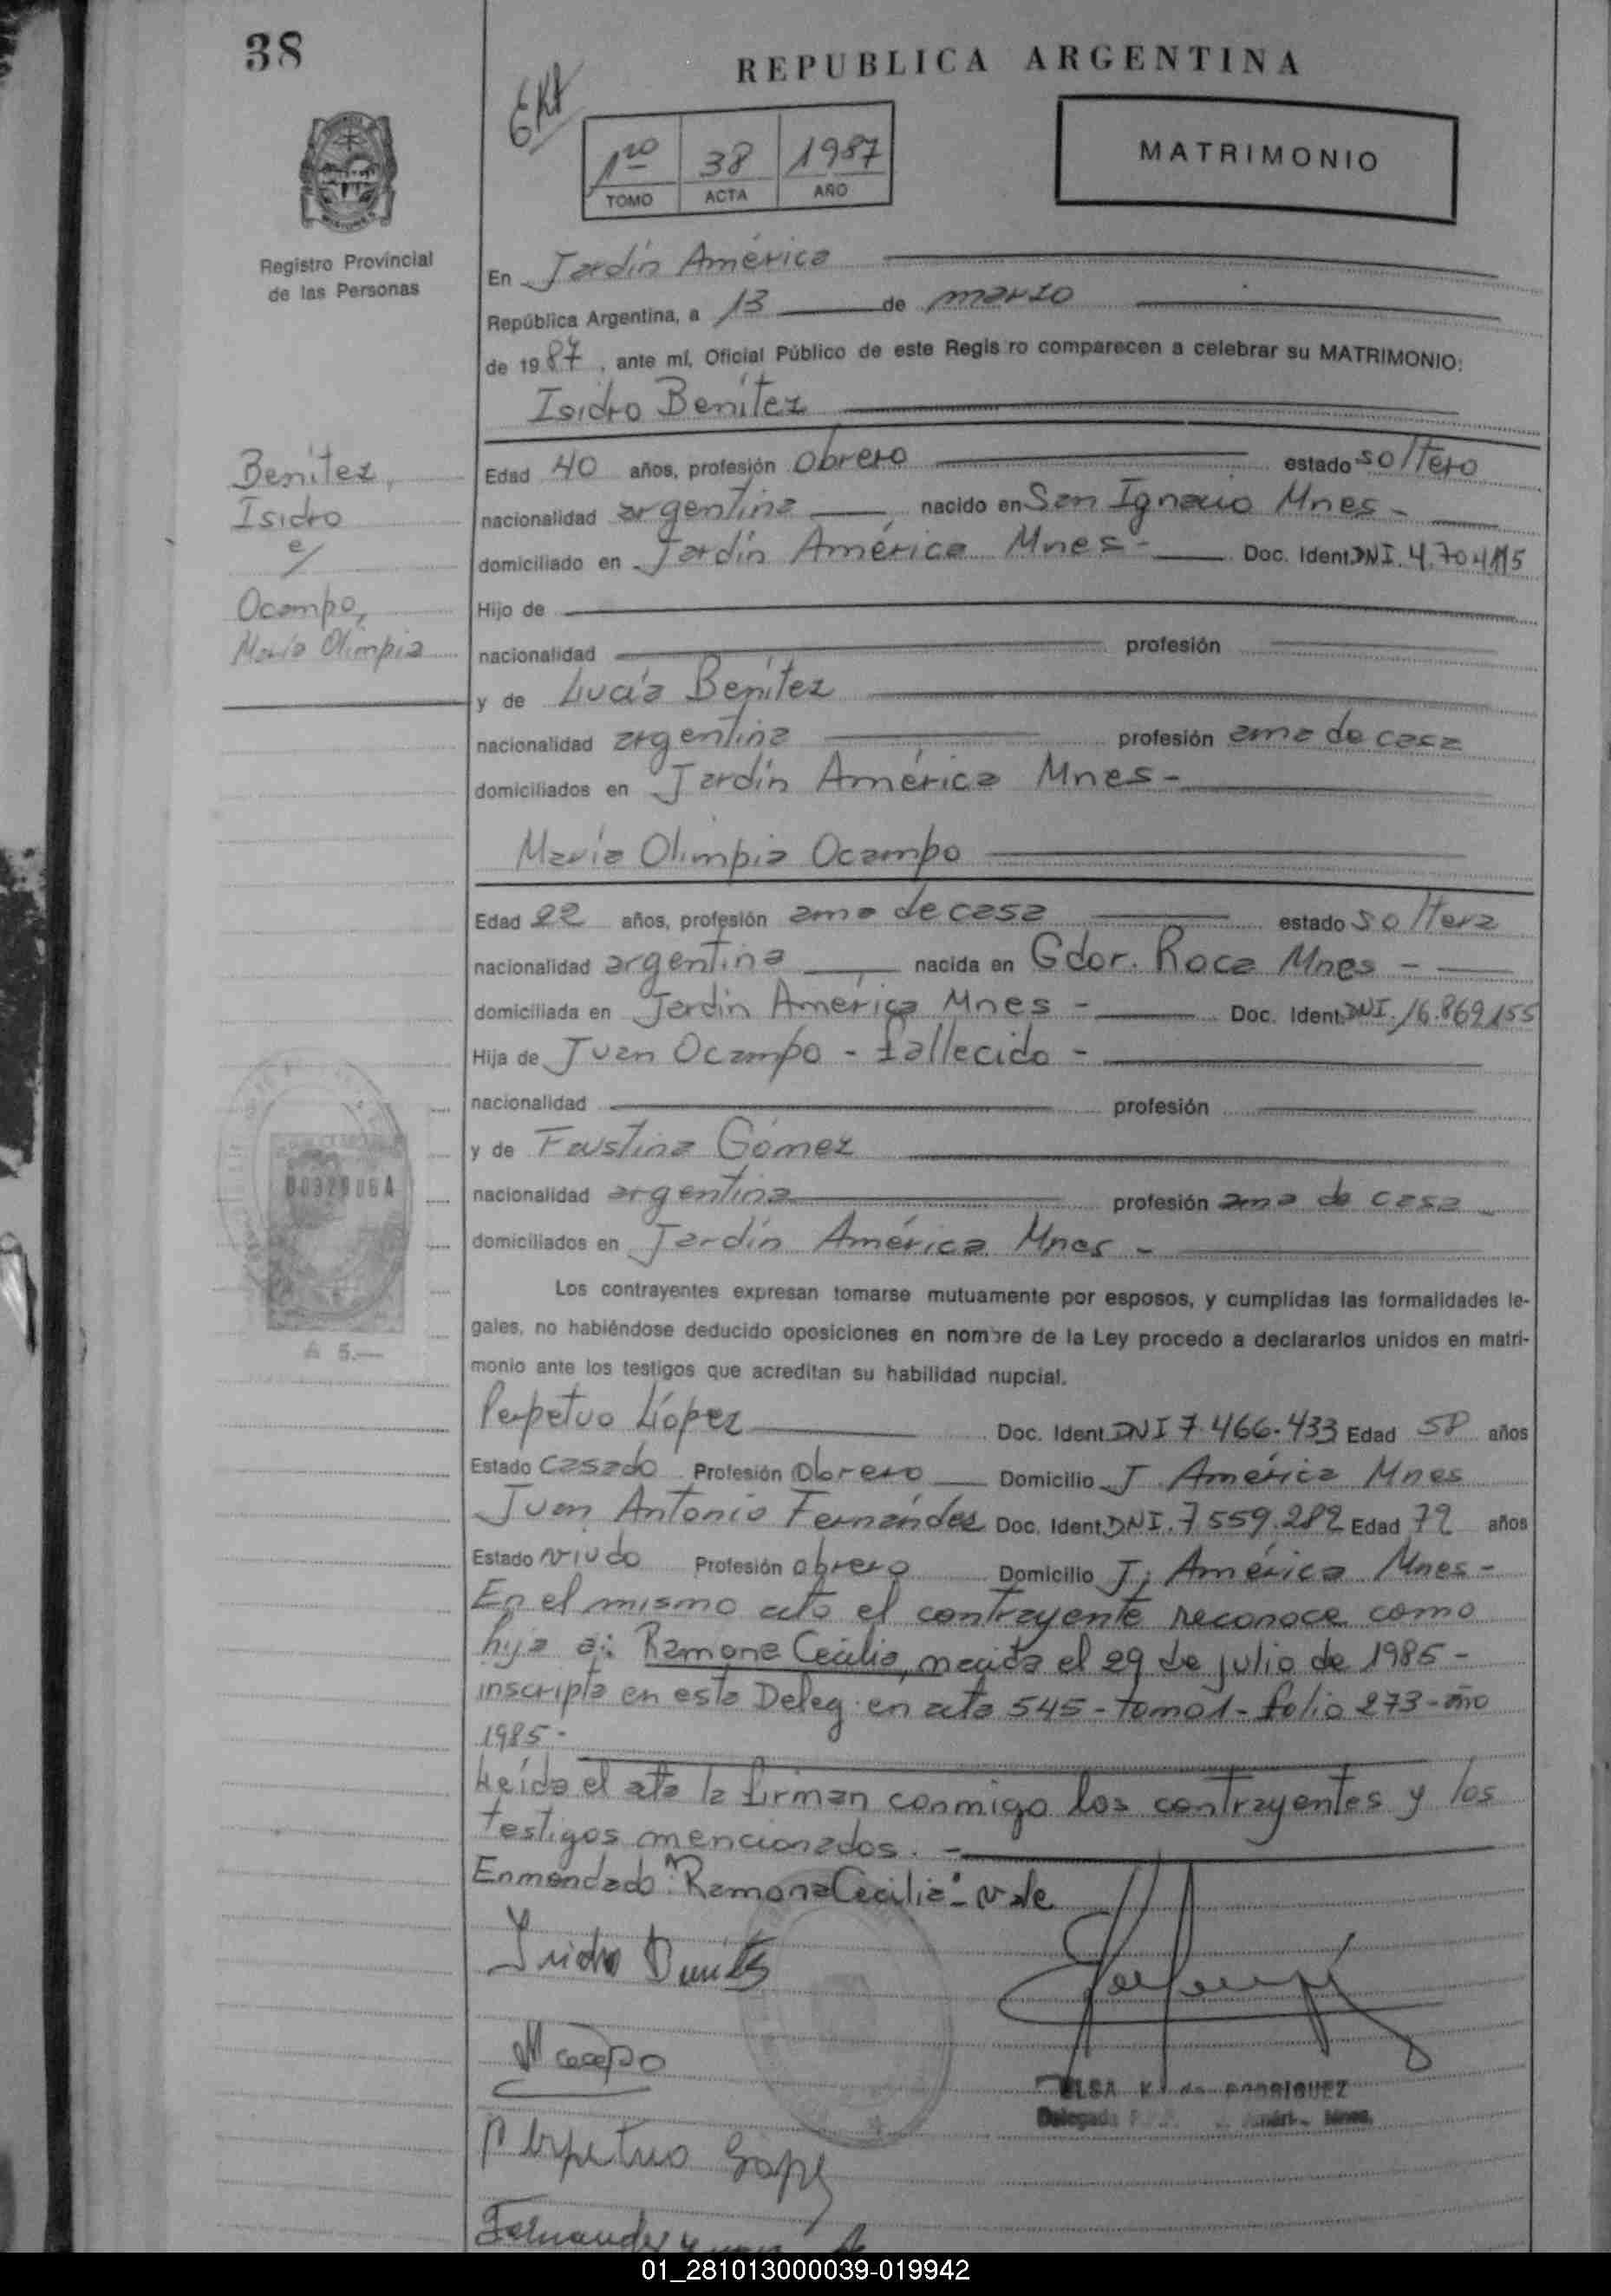 38
REPUBLICA ARGENTINA
1ro 38 1987
TOMO ACTA AÑO
MATRIMONIO
Registro Provincial
de las Personas
En Jardín América
República Argentina, a 13 de marzo
de 1987, ante mí, Oficial Público de este Regis ro comparecen a celebrar su MATRIMONIO:
Isidro Benítez
Benítez,
Isidro
c/
Ocampo,
María Olimpia
Edad 40 años, profesión obrero estado soltero
nacionalidad argentina nacido en San Ignacio Mnes -
domiciliado en Jardín América Mnes - Doc. Ident. DNI. 4.704.115
Hijo de
nacionalidad profesión
y de Lucía Benítez
nacionalidad argentina profesión ama de casa
domiciliados en Jardín América Mnes -
María Olimpia Ocampo
Edad 22 años, profesión ama de casa estado soltera
nacionalidad argentina nacida en Gdor. Roca Mnes -
domiciliada en Jardín América Mnes - Doc. Ident. DNI. 16.869.155
Hija de Juan Ocampo - fallecido -
nacionalidad profesión
y de Faustina Gómez
nacionalidad argentina profesión ama de casa
domiciliados en Jardín América Mnes -
Los contrayentes expresan tomarse mutuamente por esposos, y cumplidas las formalidades le-
gales, no habiéndose deducido oposiciones en nombre de la Ley procedo a declararlos unidos en matri-
monio ante los testigos que acreditan su habilidad nupcial.
Perpetuo López Doc. Ident DNI 7.466.433 Edad 58 años
Estado casado Profesión obrero Domicilio J. América Mnes
Juan Antonio Fernández Doc. Ident. DNI. 7.559.282 Edad 72 años
Estado viudo Profesión obrero Domicilio J. América Mnes -
En el mismo acto el contrayente reconoce como
hija a: Ramona Cecilia, nacida el 29 de julio de 1985 -
inscripta en esta Deleg. en acta 545 - tomo 1 - folio 273 - año
1985 -
Leída el acta la firman conmigo los contrayentes y los
testigos mencionados. -
Enmendado: "Ramona Cecilia" - vale
Isidro Benites
M Ocampo
ELSA K. de RODRIGUEZ
Perpetuo Lopez
Fernandez
A 5.—
01_281013000039-019942